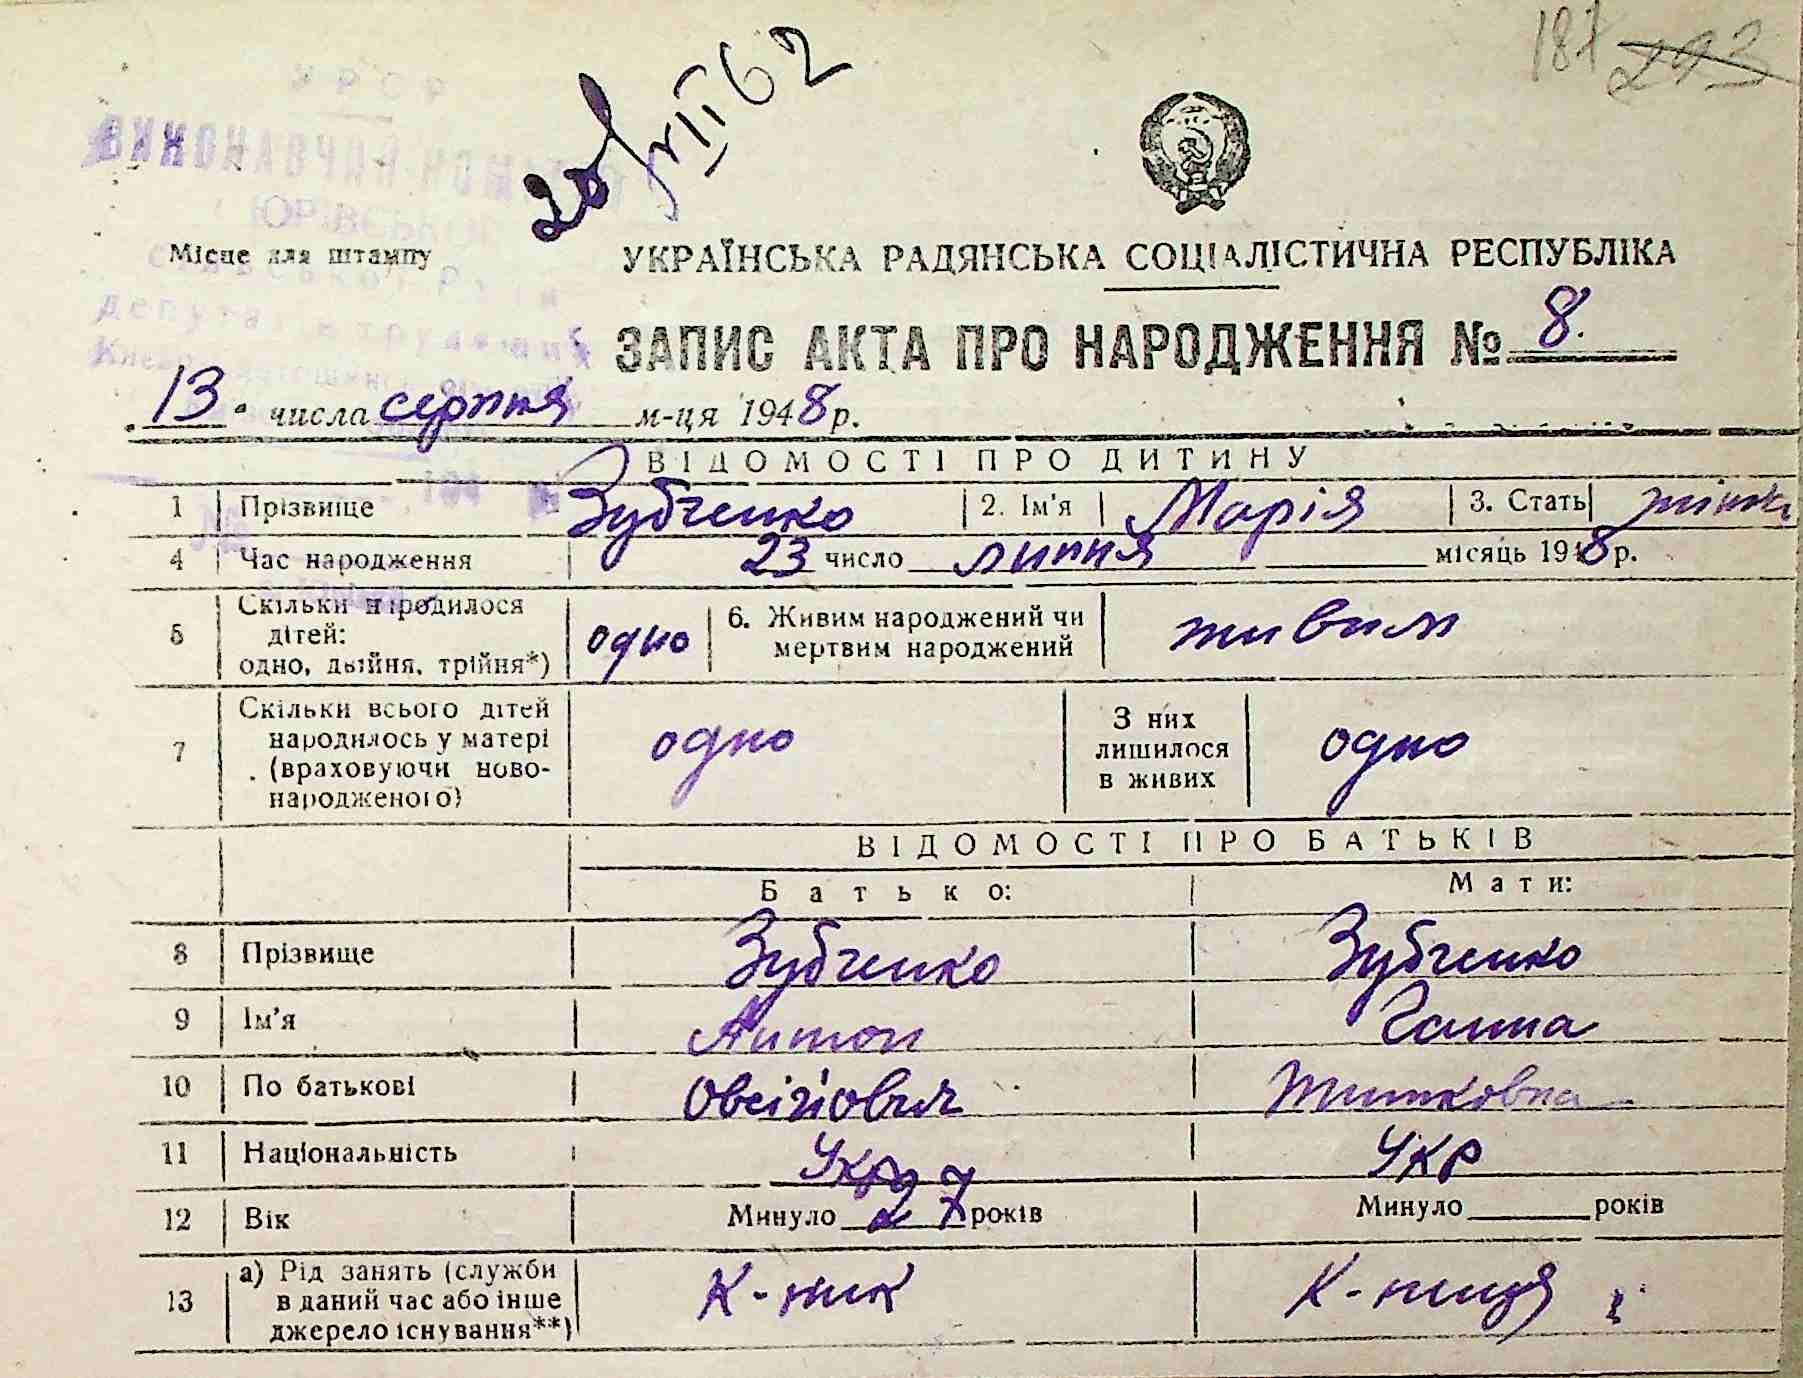 187 293
20/VII 62
УРСР
ВИКОНАВЧИЙ КОМІТЕТ
ЮРІВСЬКОЇ
сільської Ради
депутатів трудящих
Місце для штампу
УКРАЇНСЬКА РАДЯНСЬКА СОЦІАЛІСТИЧНА РЕСПУБЛІКА
ЗАПИС АКТА ПРО НАРОДЖЕННЯ № 8.
13 числа серпня м-ця 1948 р.
ВІДОМОСТІ ПРО ДИТИНУ
1 Прізвище Зубченко 2. Ім'я Марія 3. Стать жіноч
4 Час народження 23 число липня місяць 1948 р.
5 Скільки народилося дітей: одно, двійня, трійня*) одно 6. Живим народжений чи мертвим народжений живим
7 Скільки всього дітей народилось у матері (враховуючи ново-народженого) одно З них лишилося в живих одно
ВІДОМОСТІ ПРО БАТЬКІВ
Батько: Мати:
8 Прізвище Зубченко Зубченко
9 Ім'я Антон Ганна
10 По батькові
11 Національність Укр УКР
12 Вік Минуло 27 років Минуло років
13 а) Рід занять (служби в даний час або інше джерело існування**) К-ник К-ниця